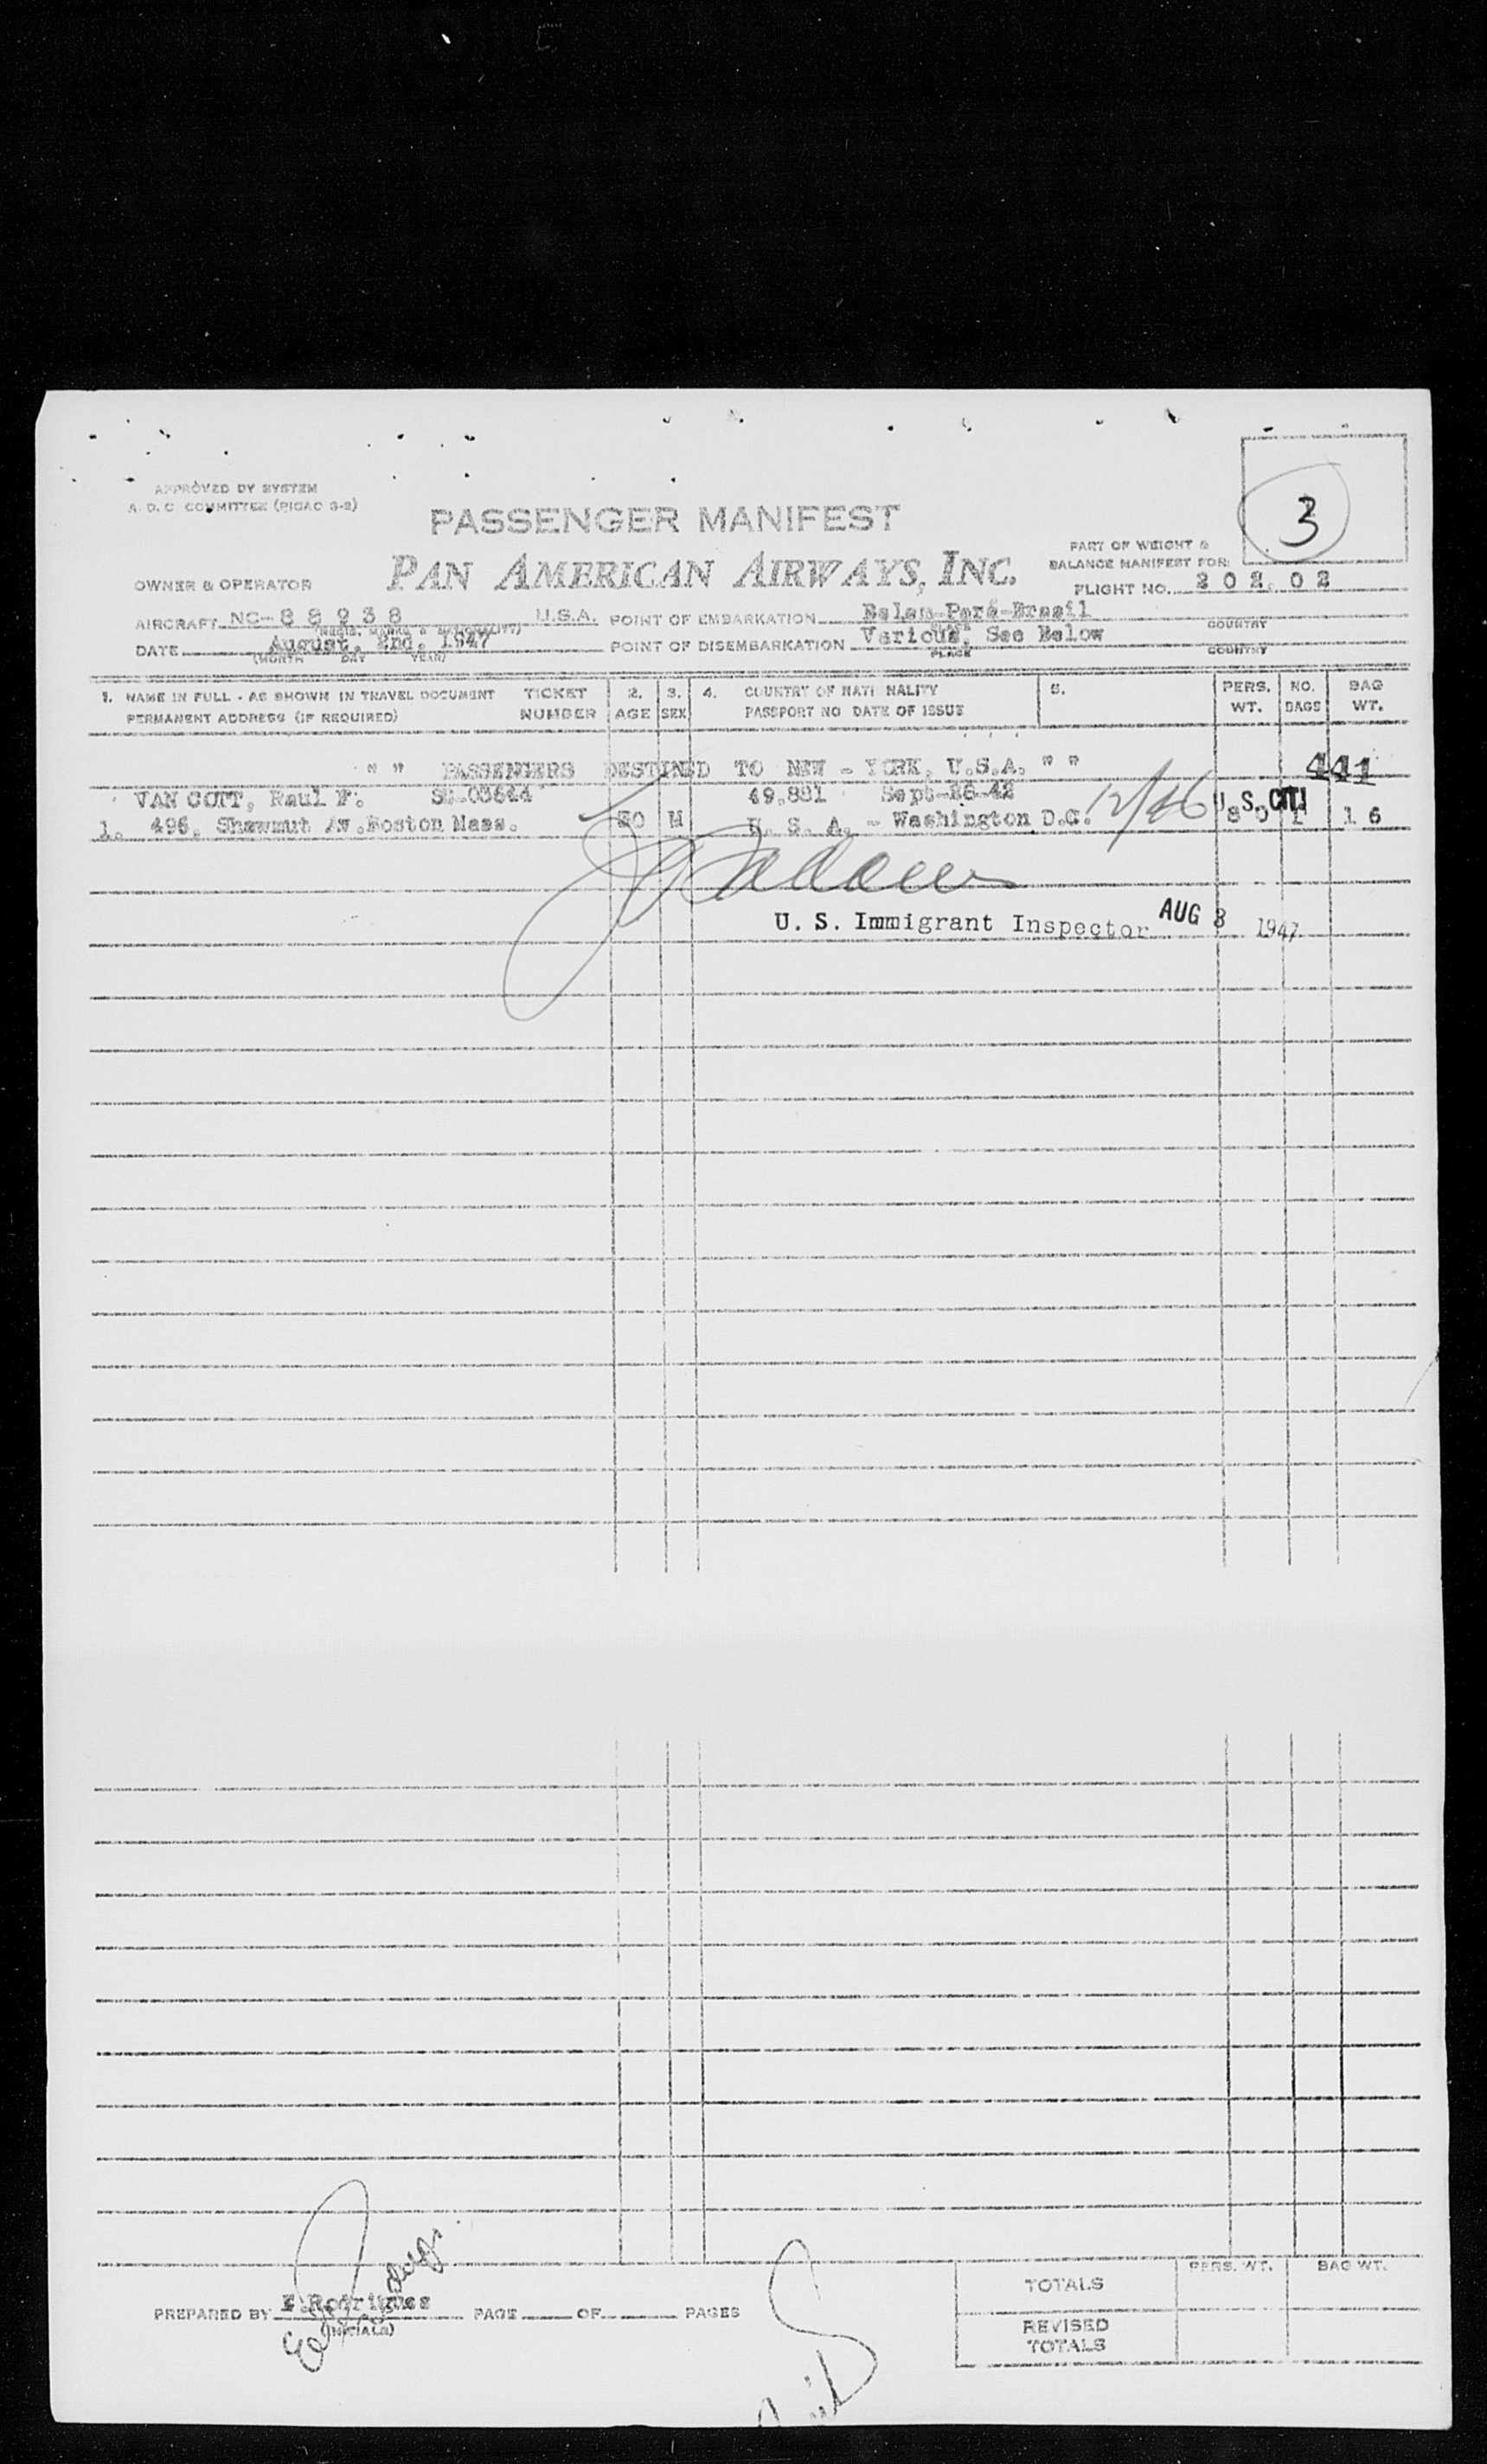 3
APPROVED BY SYSTEM
A. D. C. COMMITTEE (PICAO 3-2)
PASSENGER MANIFEST
PART OF WEIGHT &
BALANCE MANIFEST FOR:
OWNER & OPERATOR PAN AMERICAN AIRWAYS, INC. FLIGHT NO. 202.02
AIRCRAFT NC-88938 U.S.A. POINT OF EMBARKATION Belem-Pará-Brasil
(REGIS. MARKS & NATIONALITY) PLACE COUNTRY
DATE August, 2nd. 1947 POINT OF DISEMBARKATION Various, See Below
(MONTH DAY YEAR) PLACE COUNTRY
1. NAME IN FULL - AS SHOWN IN TRAVEL DOCUMENT TICKET 2. 3. 4. COUNTRY OF NATI NALITY 5. PERS. NO. BAG
PERMANENT ADDRESS (IF REQUIRED) NUMBER AGE SEX PASSPORT NO DATE OF ISSUE WT. BAGS WT.
" " PASSENGERS DESTINED TO NEW - YORK, U.S.A. " " 441
VAN COTT, Raul F. 49,881 Sept-26-42 12/46 U.S. CITI
1. 496, Shawmut Av. Boston Mass. M U. S. A. - Washington D.C. 1 16
U. S. Immigrant Inspector AUG 3 1947
PREPARED BY E Rodrigues PAGE OF PAGES
(INITIALS)
PERS. WT. BAG WT.
TOTALS
REVISED
TOTALS